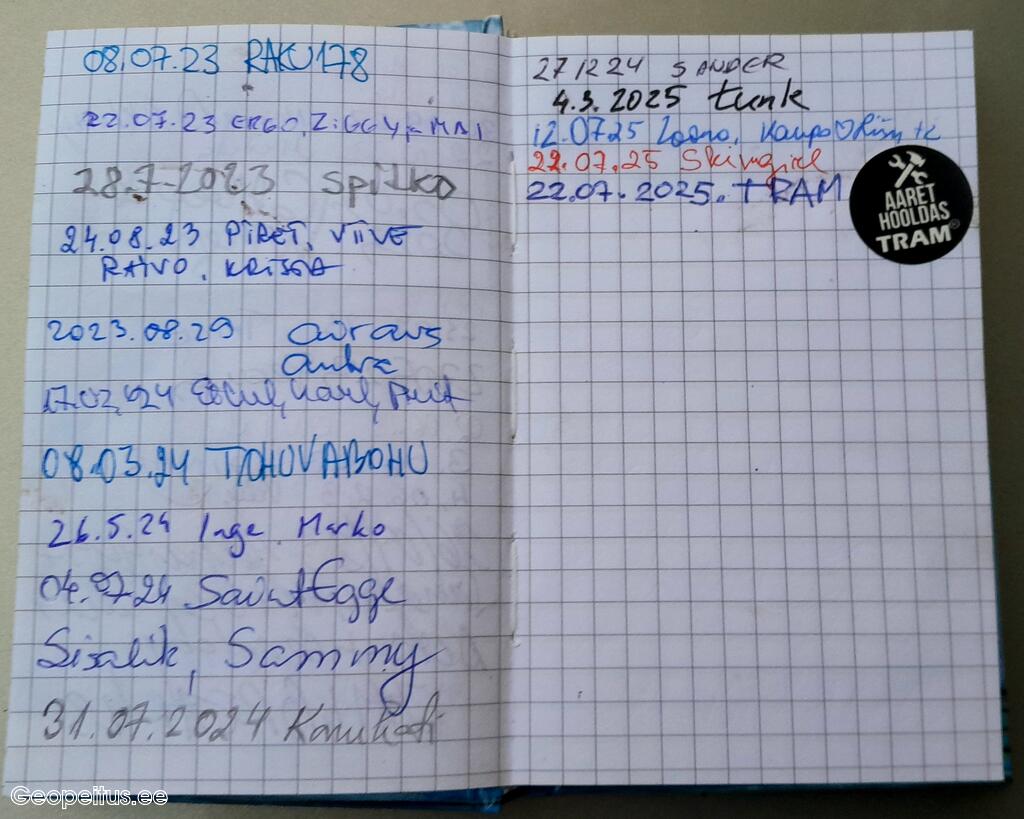 08.07.23 RAKU178
22.07.23 ERGO, ZIGGY, MAI
28.7.2023 Spitko
24.08.23 PIRET, VIIVE
RAIVO, KRISTA
2023.08.29
17.02.24 Karl,
08.03.24 TOHUVABOHU
26.5.24 Inge, Marko
04.07.24 SaintEgge
Sisalik, Sammy
31.07.2024 Karukati
27 12 24 SANDER
4.3.2025 tunk
12.0725 Kaupo
22.07.25
22.07.2025. TRAM
AARET
HOOLDAS
TRAM®
Geopeitus.ee